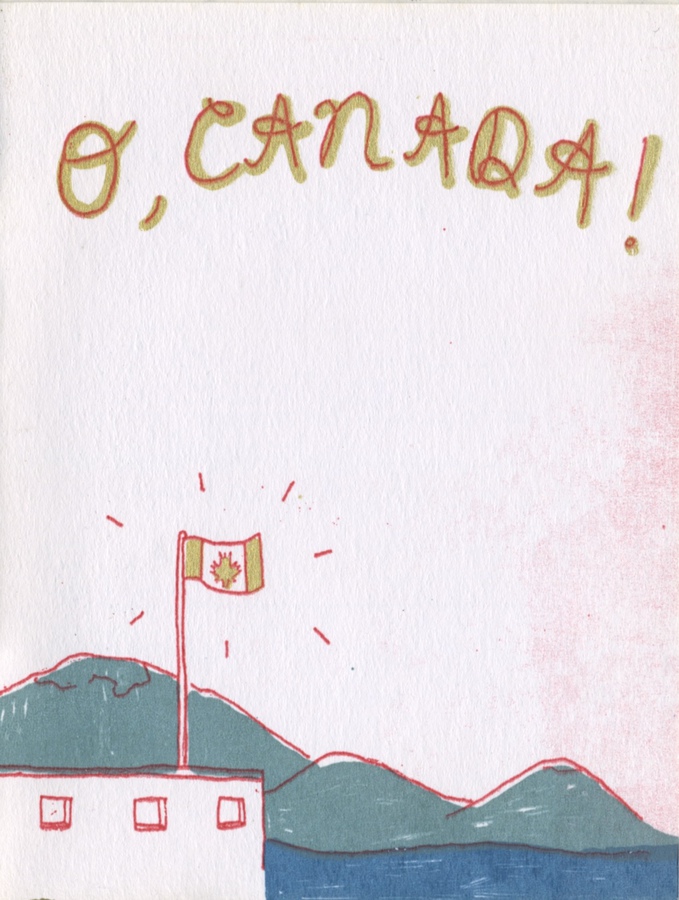 O, CANADA!